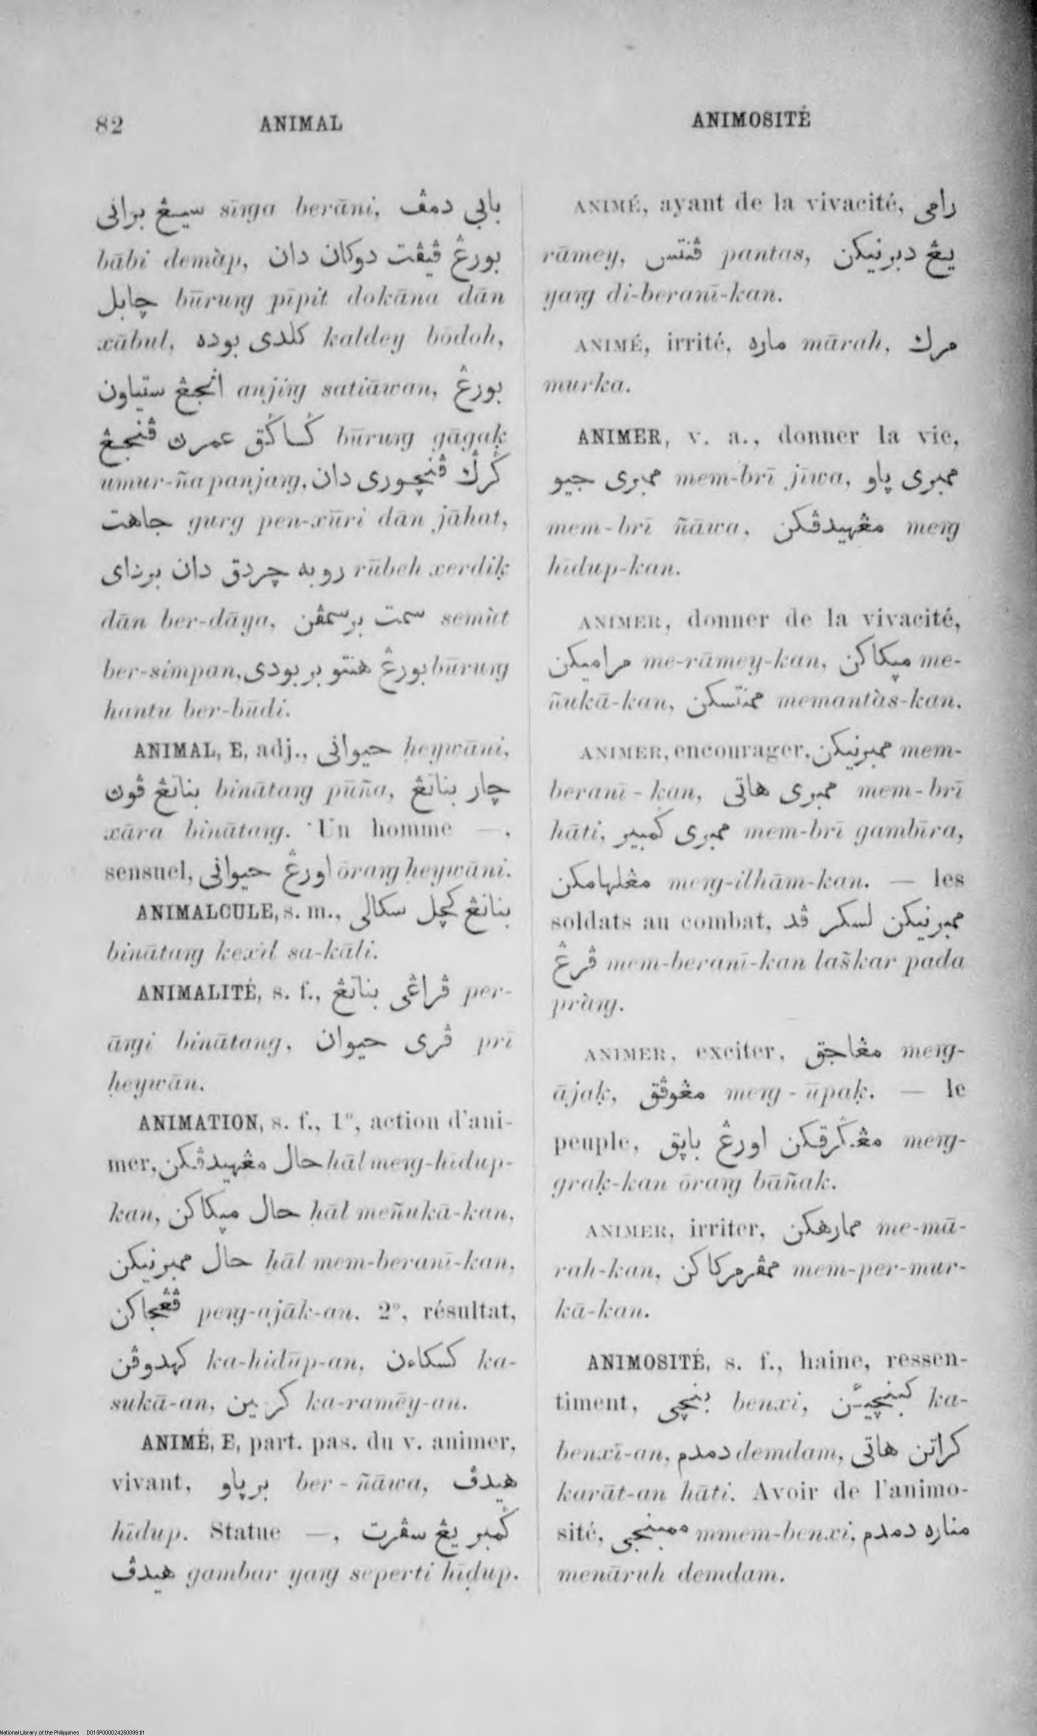 82 ANIMAL ANIMOSITÉ
سيغ براني sīŋga berāni, بابي دمڤ
bābi demàp, بورڠ ڤيڤت دوكان دان
چابل būruŋg pīpit dokāna dān
xābul, كلدى بوده kaldey bōdoh,
انجڠ ستياون anjiŋg satiāwan, بورڠ
ݢاݢق عمرن ڤنجڠ būruŋg gāgaḳ
umur-ña panjaŋg, ݢرݢ ڤنچورى دان
جاهت gurg pen-xūri dān jāhat,
روبه چردق دان برداى rūbeh xerdiḳ
dān ber-dāya, سمت برسمڤن semùt
ber-simpan, بورڠ هنتو بربودى būruŋg
hantu ber-būdi.
ANIMAL, E, adj., حيوانى ḥeywāni,
بناتڠ ڤون binātaŋg pūña, چار بناتڠ
xāra binātaŋg. Un homme —,
sensuel, اورڠ حيوانى ōraŋg ḥeywāni.
ANIMALCULE, s. m., بناتڠ كچل سكالى
binātaŋg kexil sa-kāli.
ANIMALITÉ, s. f., ڤراڠى بناتڠ per-
āŋgi binātang, ڤرى حيوان prī
ḥeywān.
ANIMATION, s. f., 1º, action d'ani-
mer, حال مڠهيدڤكن ḥāl meŋg-hīdup-
kan, حال مپكاكن ḥāl meñukā-kan,
حال ممبرنيكن ḥāl mem-beranī-kan,
ڤڠجاكن peŋg-ajāk-an. 2º, résultat,
كهدوڤن ka-hidūp-an, كسكاءن ka-
sukā-an, كرمين ka-ramēy-an.
ANIMÉ, E, part. pas. du v. animer,
vivant, برپاو ber-ñāwa, هيدڤ
hīdup. Statue —, ݢمبر يڠ سڤرت
هيدڤ gambar yaŋg seperti hīdup.
ANIMÉ, ayant de la vivacité, رامى
rāmey, ڤنتس pantas, يڠ دبرنيكن
yaŋg di-beranī-kan.
ANIMÉ, irrité, ماره mārah, مرك
murka.
ANIMER, v. a., donner la vie,
ممبرى جيو mem-brī jīwa, ممبرى پاو
mem-brī ñāwa, مڠهيدڤكن meŋg
hīdup-kan.
ANIMER, donner de la vivacité,
مراميكن me-rāmey-kan, مپكاكن me-
ñukā-kan, ممنتسكن memantàs-kan.
ANIMER, encourager, ممبرنيكن mem-
beranī-kan, ممبرى هاتى mem-brī
hāti, ممبرى ݢمبير mem-brī gambīra,
مڠلهامكن meŋg-ilhām-kan. — les
soldats au combat, ممبرنيكن لسكر ڤد
ڤرڠ mem-beranī-kan laškar pada
pràŋg.
ANIMER, exciter, مڠاجق meŋg-
ājaḳ, مڠوڤق meŋg-ūpaḳ. — le
peuple, مڠݢرقكن اورڠ باپق meŋg-
graḳ-kan ōraŋg bāñak.
ANIMER, irriter, ممارهكن me-mā-
rah-kan, ممڤرمركاكن mem-per-mur-
kā-kan.
ANIMOSITÉ, s. f., haine, ressen-
timent, بنچى benxi, كبنچيئن ka-
benxī-an, دمدم demdam, كراتن هاتى
karāt-an hāti. Avoir de l'animo-
sité, ممبنچى mmem-benxi, مناره دمدم
menāruh demdam.
National Library of the Philippines